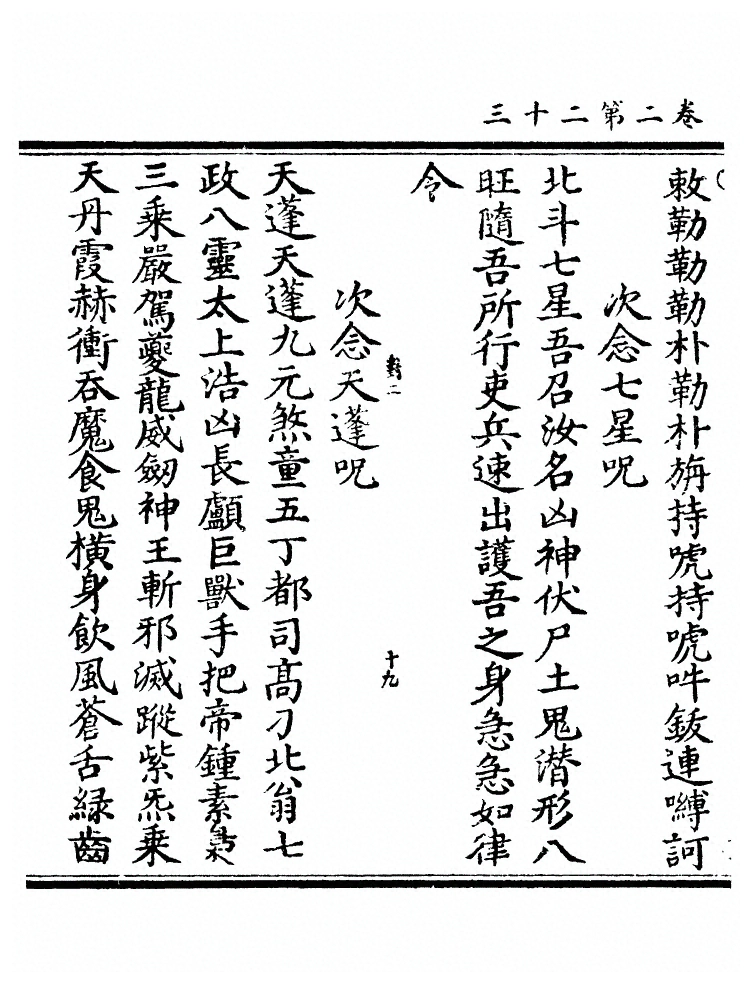 卷二第二十三
敕勒勒勒朴勒朴旃持唬持唬吽鈸連嚩訶
次念七星呪
北斗七星吾召汝名凶神伏尸土鬼潜形八
旺隨吾所行吏兵速出護吾之身急急如律
令
十九
次念天蓬呪
天蓬天蓬九元煞童五丁都司髙刁北翁七
政八靈太上浩凶長顱巨獸手把帝鍾素梟
三乘嚴駕夔龍威劒神王斬邪滅蹤紫炁乘
天丹霞赫衝吞魔食鬼橫身飲風蒼舌緑齒